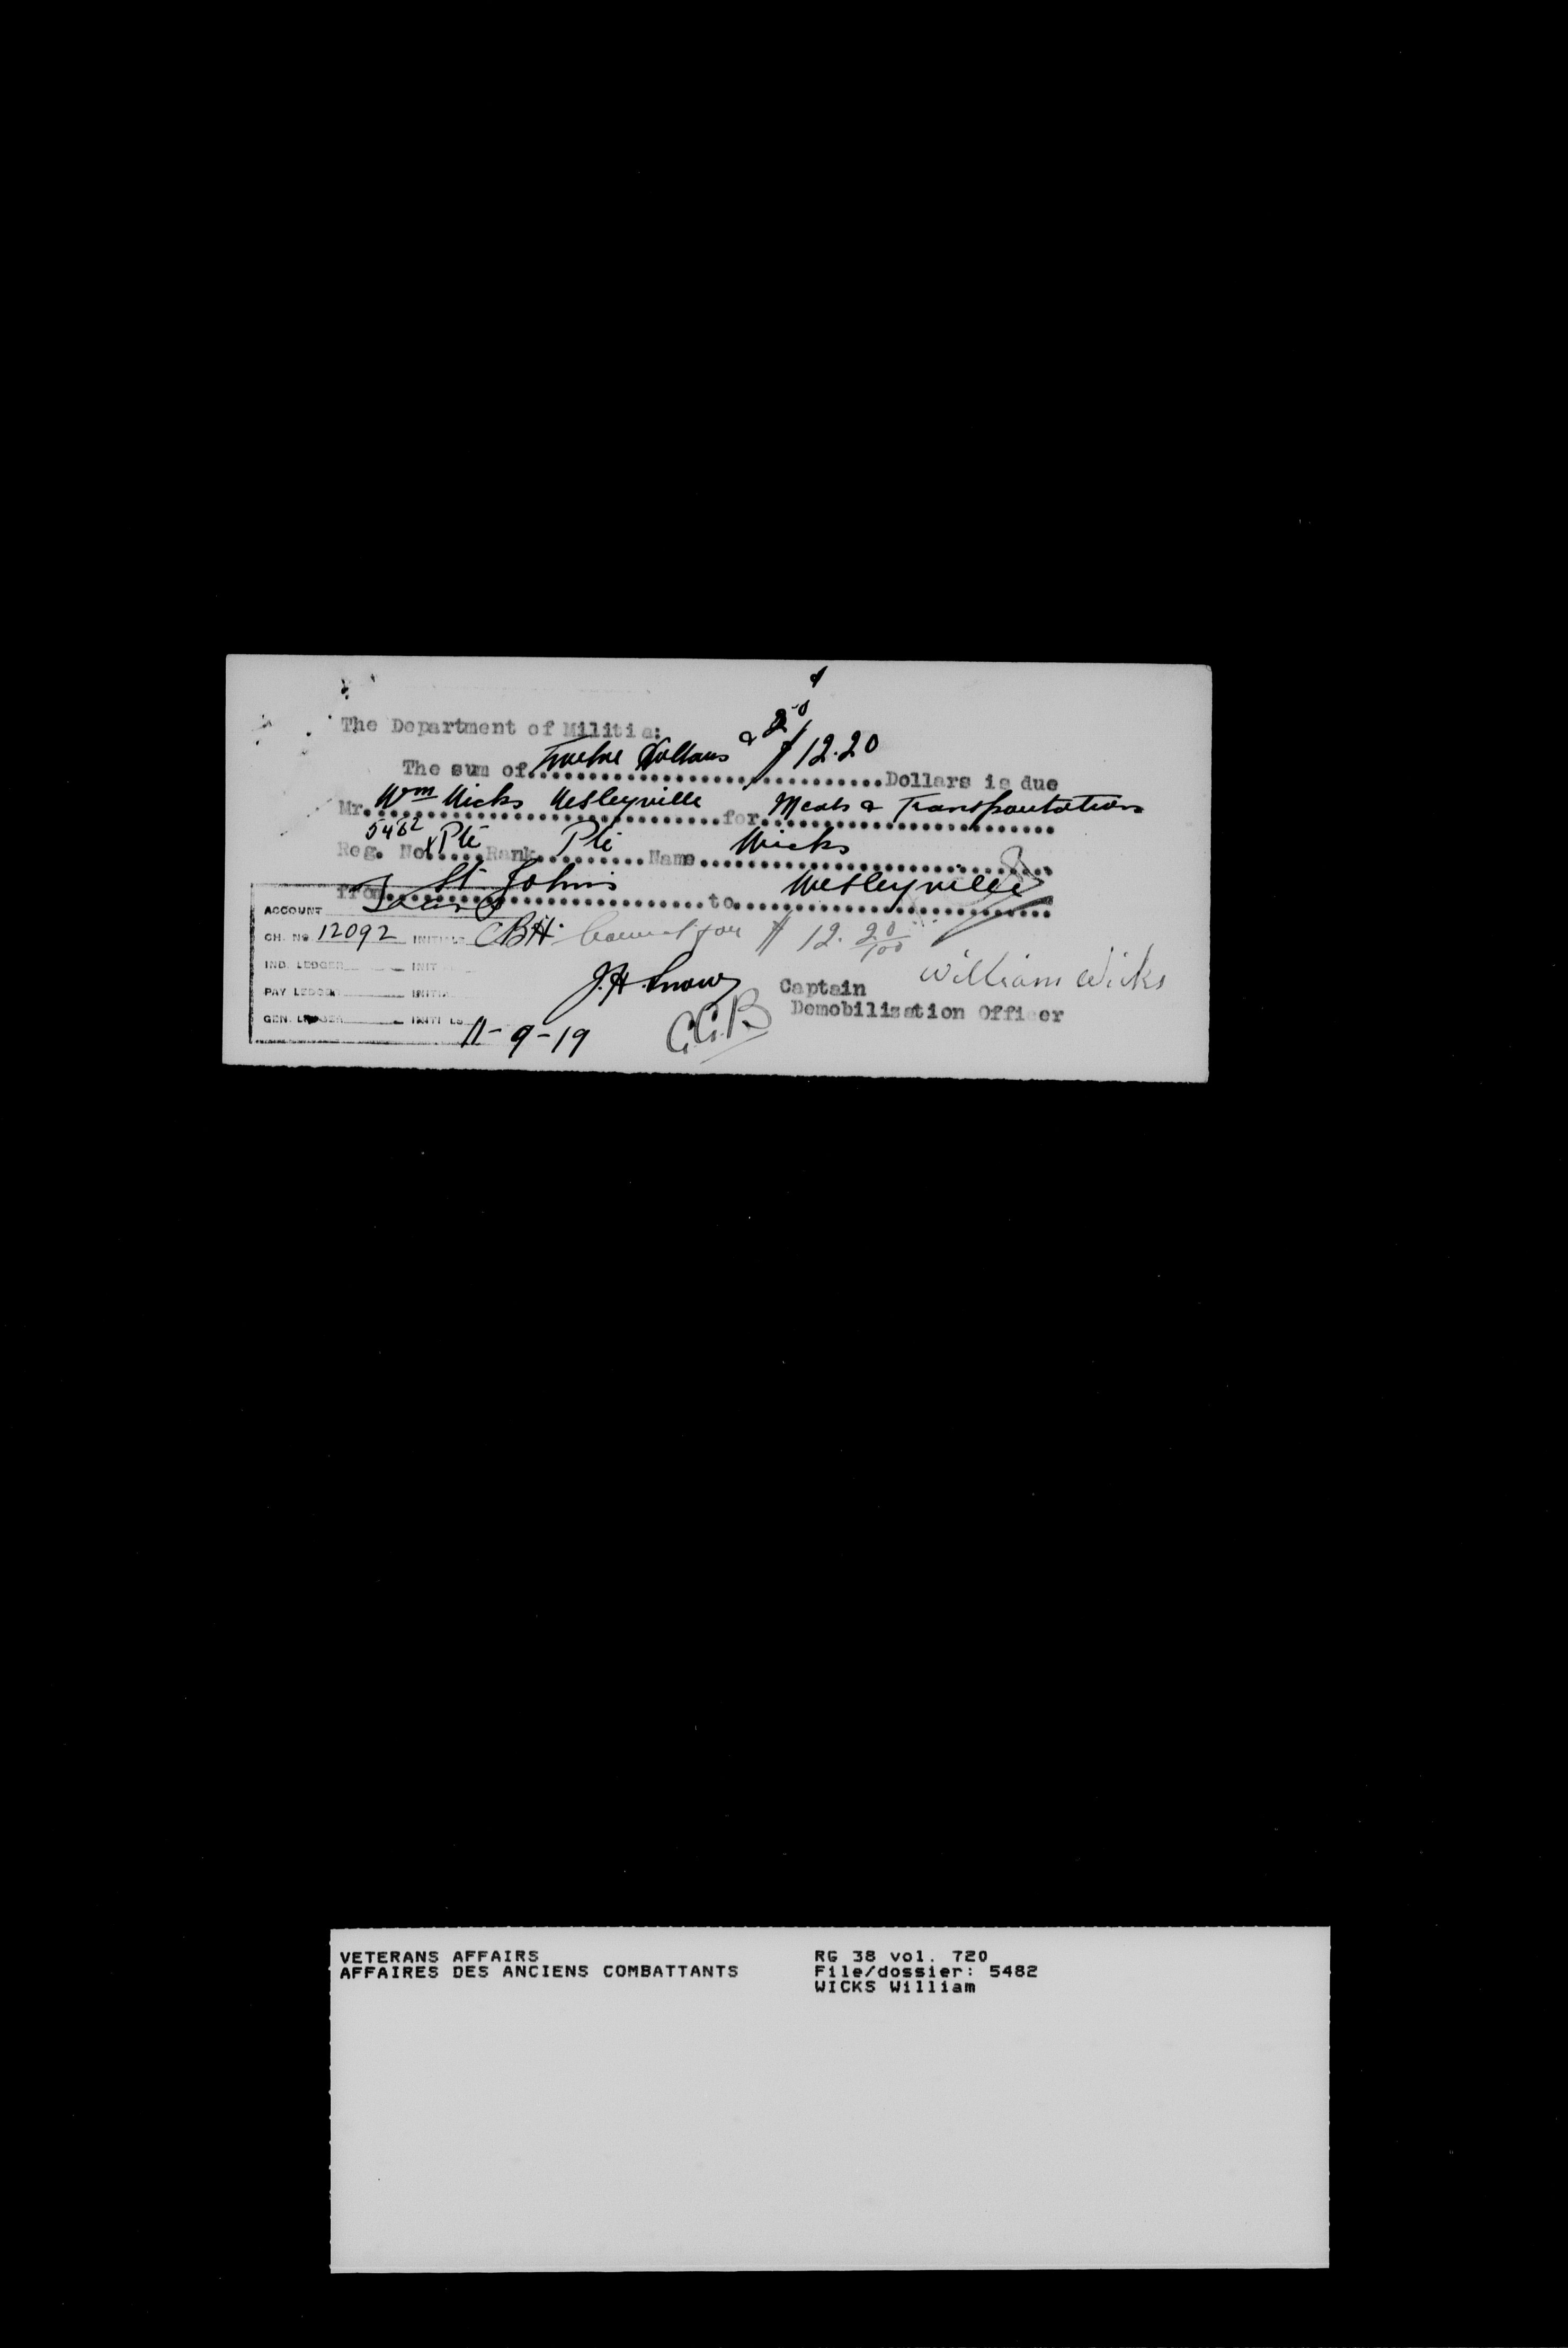 The Department of Militia:
The sum of Twelve Dollars & 20 $12.20 Dollars is due
Mr. Wm Wicks Wesleyville for Meals & Transportation
Reg. No. 5482 Pte Rank Pte Name Wicks
from St Johns to Wesleyville
ACCOUNT
CH. No 12092 INITIALS CBH. Correct for $ 12. 20/100
IND. LEDGER INIT
PAY LEDGER INITIA
GEN. LEDGER INITI LS
J.H. Snow Captain William Wicks
Demobilization Officer
C.C.B
11-9-19
VETERANS AFFAIRS
AFFAIRES DES ANCIENS COMBATTANTS
RG 38 vol. 720
File/dossier: 5482
WICKS William